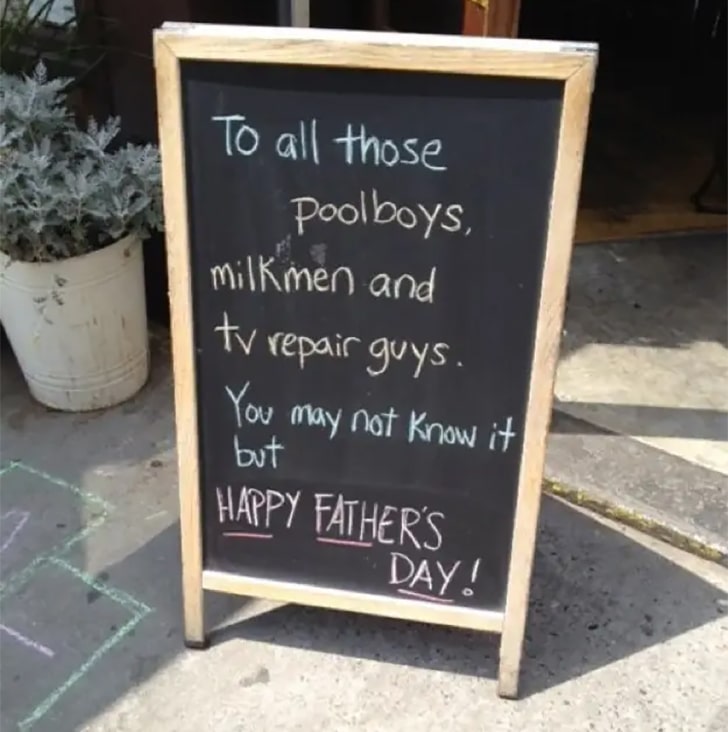 To all those
poolboys,
milkmen and
tv repair guys.
You may not know it
but
HAPPY FATHER'S
DAY!